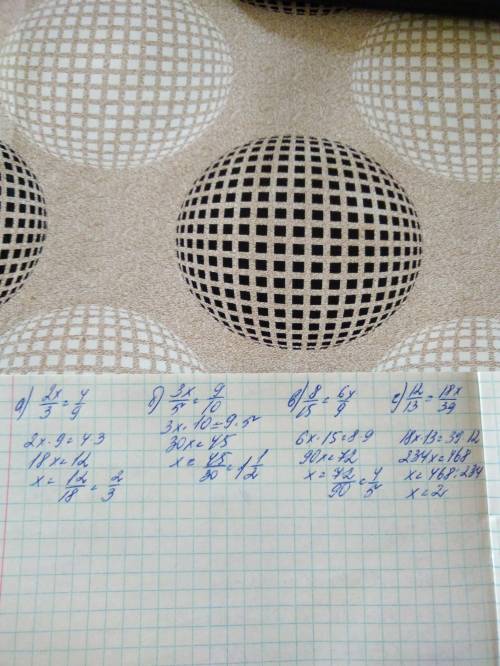 а) 2x/3 = 4/9
2x · 9 = 4 · 3
18x = 12
x = 12/18 = 2/3
б) 3x/5 = 9/10
3x · 10 = 9 · 5
30x = 45
x = 45/30 = 1 1/2
в) 8/15 = 6x/9
6x · 15 = 8 · 9
90x = 72
x = 72/90 = 4/5
с) 12/13 = 18x/39
18x · 13 = 39 · 12
234x = 468
x = 468 : 234
x = 2